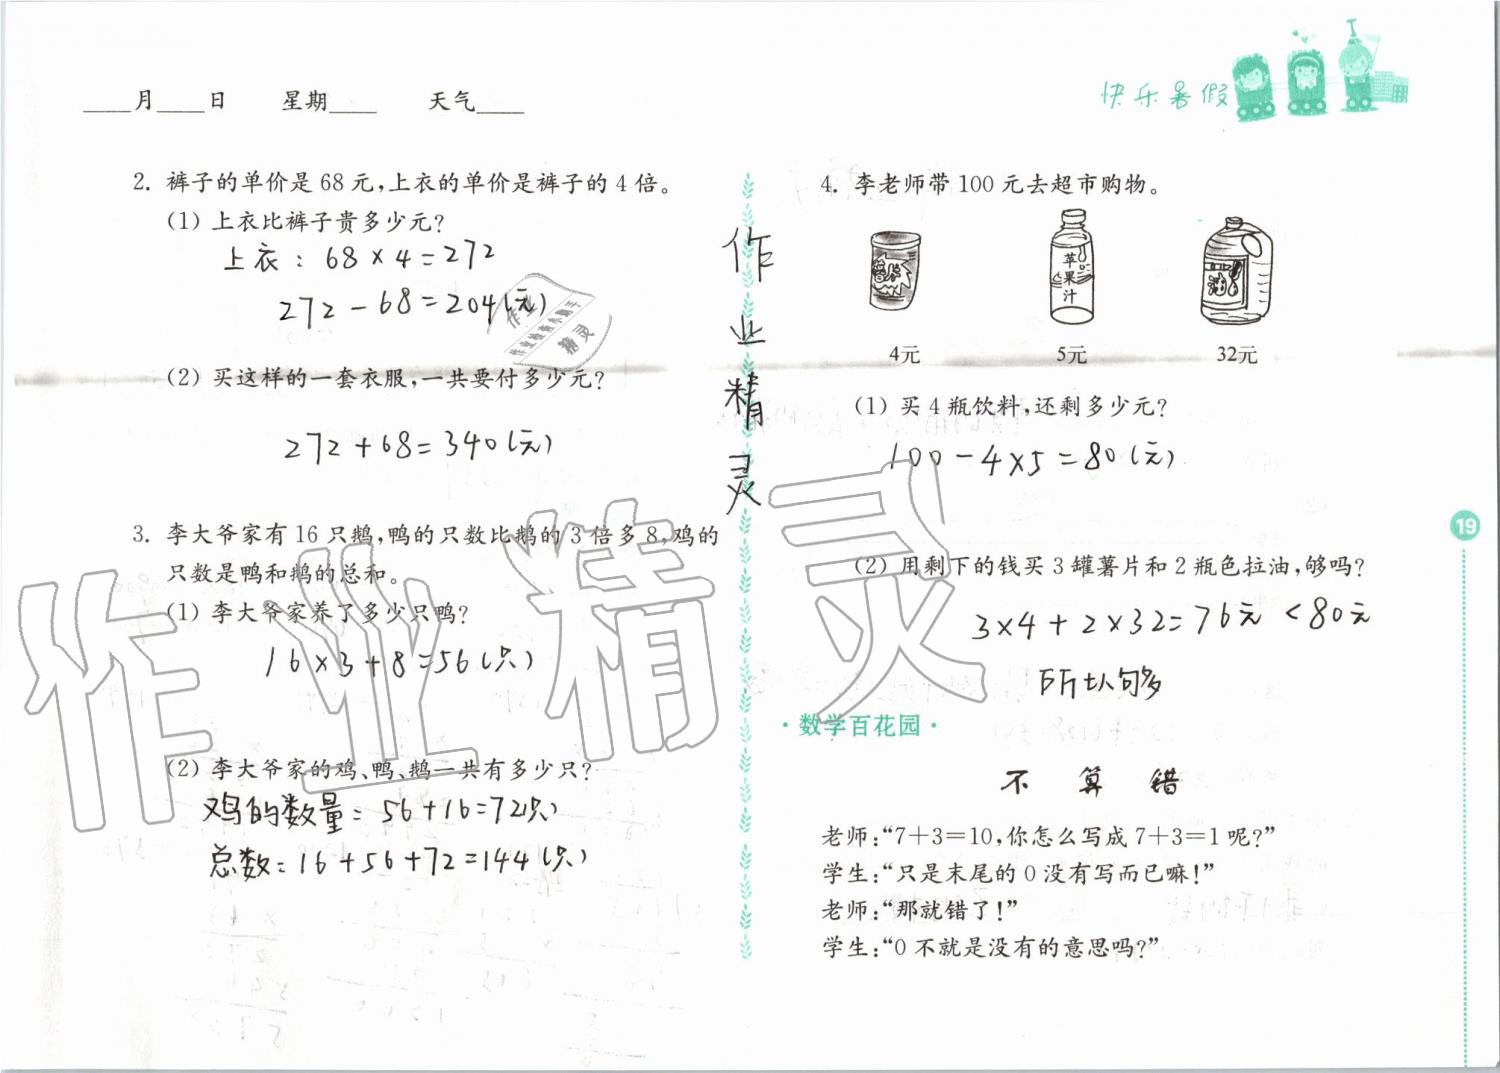 ____月____日 星期____ 天气____
快乐暑假
2. 裤子的单价是 68 元,上衣的单价是裤子的 4 倍。
(1) 上衣比裤子贵多少元?
上衣：68×4=272
272-68=204(元)
(2) 买这样的一套衣服,一共要付多少元?
272+68=340(元)
3. 李大爷家有 16 只鹅,鸭的只数比鹅的 3 倍多 8,鸡的
只数是鸭和鹅的总和。
(1) 李大爷家养了多少只鸭?
16×3+8=56(只)
(2) 李大爷家的鸡、鸭、鹅一共有多少只?
鸡的数量=56+16=72只
总数=16+56+72=144(只)
作业精灵
作业精灵
4. 李老师带 100 元去超市购物。
薯片
苹果汁
4元 5元 32元
(1) 买 4 瓶饮料,还剩多少元?
100-4×5=80(元)
(2) 用剩下的钱买 3 罐薯片和 2 瓶色拉油,够吗?
3×4+2×32=76元<80元
所以够
·数学百花园·
不 算 错
老师:“7+3=10,你怎么写成 7+3=1 呢?”
学生:“只是末尾的 0 没有写而已嘛!”
老师:“那就错了!”
学生:“0 不就是没有的意思吗?”
19